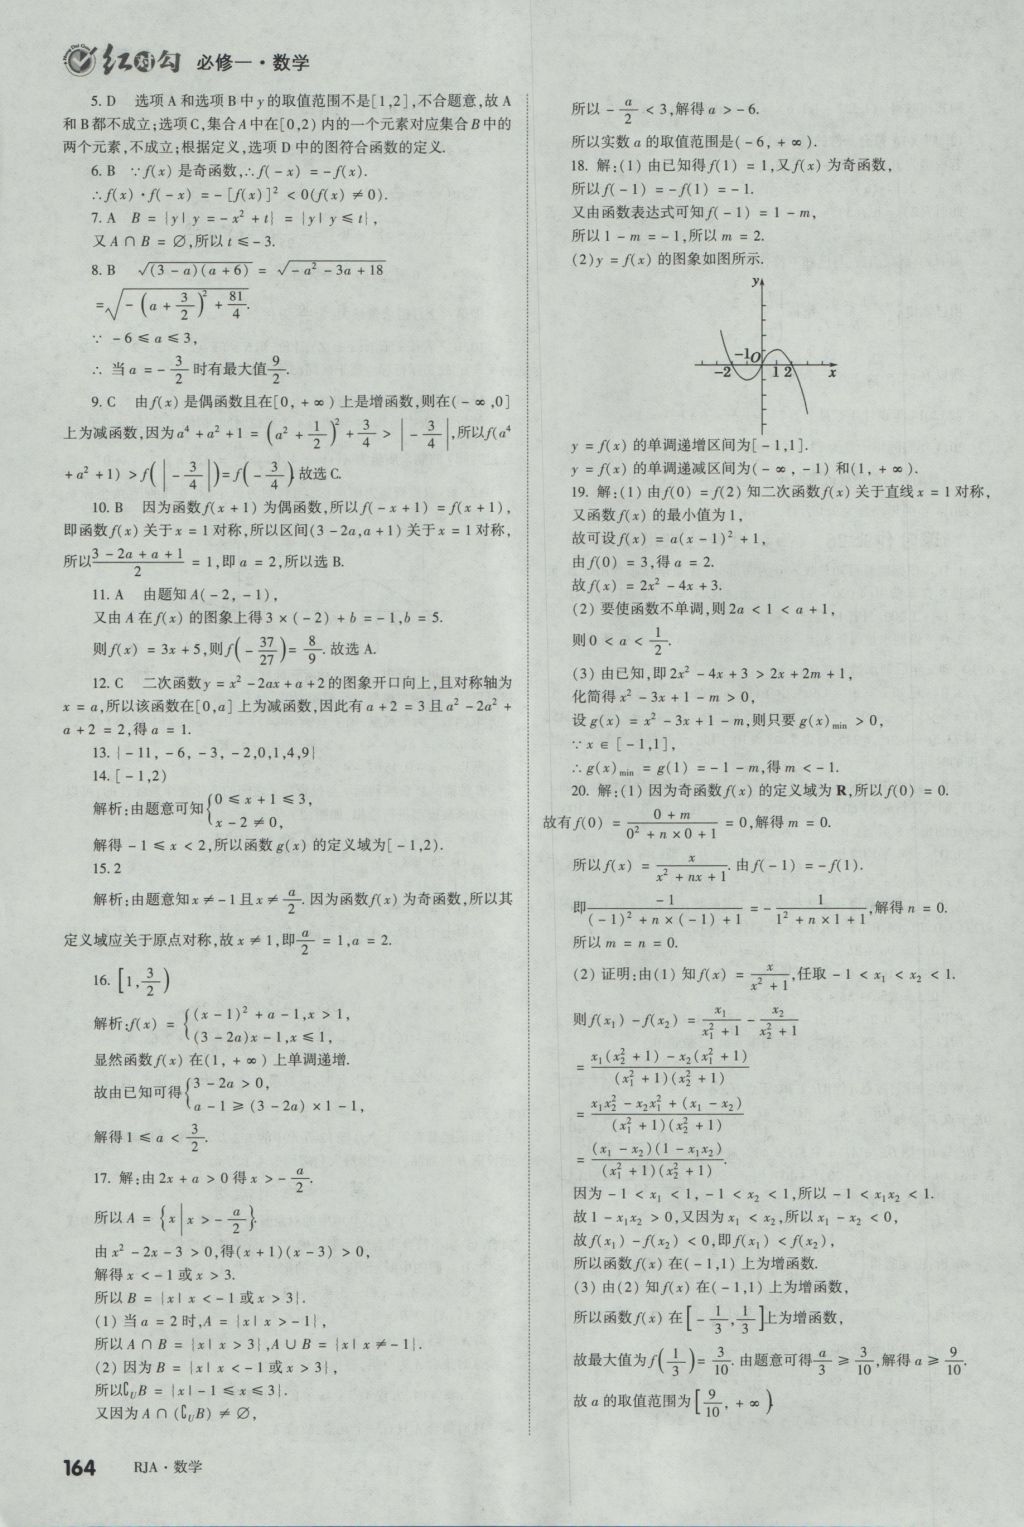 红对勾 必修一·数学
5. D 选项 A 和选项 B 中 y 的取值范围不是[1,2],不合题意,故 A
和 B 都不成立;选项 C,集合 A 中在[0,2) 内的一个元素对应集合 B 中的
两个元素,不成立;根据定义,选项 D 中的图符合函数的定义.
6. B ∵f(x) 是奇函数,∴f(-x) = -f(x).
∴f(x)·f(-x) = -[f(x)]² < 0(f(x) ≠ 0).
7. A B = {y|y = -x² + t} = {y|y ≤ t},
又 A∩B = ∅,所以 t ≤ -3.
8. B √((3-a)(a+6)) = √(-a² - 3a + 18)
= √(-(a + 3/2)² + 81/4).
∵ -6 ≤ a ≤ 3,
∴ 当 a = -3/2 时有最大值 9/2.
9. C 由 f(x) 是偶函数且在[0, +∞) 上是增函数,则在(-∞,0]
上为减函数,因为 a⁴ + a² + 1 = (a² + 1/2)² + 3/4 > |-3/4|,所以 f(a⁴
+ a² + 1) > f(|-3/4|) = f(-3/4). 故选 C.
10. B 因为函数 f(x+1) 为偶函数,所以 f(-x+1) = f(x+1),
即函数 f(x) 关于 x = 1 对称,所以区间(3-2a,a+1) 关于 x = 1 对称,
所以 (3-2a+a+1)/2 = 1,即 a = 2,所以选 B.
11. A 由题知 A(-2, -1),
又由 A 在 f(x) 的图象上得 3×(-2) + b = -1,b = 5.
则 f(x) = 3x + 5,则 f(-37/27) = 8/9. 故选 A.
12. C 二次函数 y = x² - 2ax + a + 2 的图象开口向上,且对称轴为
x = a,所以该函数在[0,a] 上为减函数,因此有 a + 2 = 3 且 a² - 2a² +
a + 2 = 2,得 a = 1.
13. {-11, -6, -3, -2,0,1,4,9}
14. [-1,2)
解析:由题意可知{0 ≤ x+1 ≤ 3,
x - 2 ≠ 0,
解得 -1 ≤ x < 2,所以函数 g(x) 的定义域为[-1,2).
15. 2
解析:由题意知 x ≠ -1 且 x ≠ a/2. 因为函数 f(x) 为奇函数,所以其
定义域应关于原点对称,故 x ≠ 1,即 a/2 = 1,a = 2.
16. [1, 3/2)
解析:f(x) = {(x-1)² + a - 1,x > 1,
(3-2a)x - 1,x ≤ 1,
显然函数 f(x) 在(1, +∞) 上单调递增.
故由已知可得{3 - 2a > 0,
a - 1 ≥ (3-2a)×1 - 1,
解得 1 ≤ a < 3/2.
17. 解:由 2x + a > 0 得 x > -a/2.
所以 A = {x|x > -a/2}.
由 x² - 2x - 3 > 0,得(x+1)(x-3) > 0,
解得 x < -1 或 x > 3.
所以 B = {x|x < -1 或 x > 3}.
(1) 当 a = 2 时,A = {x|x > -1},
所以 A∩B = {x|x > 3},A∪B = {x|x ≠ -1}.
(2) 因为 B = {x|x < -1 或 x > 3},
所以∁UB = {x|-1 ≤ x ≤ 3}.
又因为 A∩(∁UB) ≠ ∅,
所以 -a/2 < 3,解得 a > -6.
所以实数 a 的取值范围是(-6, +∞).
18. 解:(1) 由已知得 f(1) = 1,又 f(x) 为奇函数,
所以 f(-1) = -f(1) = -1.
又由函数表达式可知 f(-1) = 1 - m,
所以 1 - m = -1,所以 m = 2.
(2) y = f(x) 的图象如图所示.
y
-1 O
-2 1 2 x
y = f(x) 的单调递增区间为[-1,1].
y = f(x) 的单调递减区间为(-∞, -1) 和(1, +∞).
19. 解:(1) 由 f(0) = f(2) 知二次函数 f(x) 关于直线 x = 1 对称,
又函数 f(x) 的最小值为 1,
故可设 f(x) = a(x-1)² + 1,
由 f(0) = 3,得 a = 2.
故 f(x) = 2x² - 4x + 3.
(2) 要使函数不单调,则 2a < 1 < a + 1,
则 0 < a < 1/2.
(3) 由已知,即 2x² - 4x + 3 > 2x + 2m + 1,
化简得 x² - 3x + 1 - m > 0,
设 g(x) = x² - 3x + 1 - m,则只要 g(x)min > 0,
∵x ∈ [-1,1],
∴g(x)min = g(1) = -1 - m,得 m < -1.
20. 解:(1) 因为奇函数 f(x) 的定义域为 R,所以 f(0) = 0.
故有 f(0) = (0+m)/(0² + n×0 + 1) = 0,解得 m = 0.
所以 f(x) = x/(x² + nx + 1). 由 f(-1) = -f(1).
即 -1/((-1)² + n×(-1) + 1) = -1/(1² + n×1 + 1),解得 n = 0.
所以 m = n = 0.
(2) 证明:由(1) 知 f(x) = x/(x² + 1),任取 -1 < x₁ < x₂ < 1.
则 f(x₁) - f(x₂) = x₁/(x₁² + 1) - x₂/(x₂² + 1)
= (x₁(x₂² + 1) - x₂(x₁² + 1))/((x₁² + 1)(x₂² + 1))
= (x₁x₂² - x₂x₁² + (x₁ - x₂))/((x₁² + 1)(x₂² + 1))
= ((x₁ - x₂)(1 - x₁x₂))/((x₁² + 1)(x₂² + 1)).
因为 -1 < x₁ < 1, -1 < x₂ < 1,所以 -1 < x₁x₂ < 1.
故 1 - x₁x₂ > 0,又因为 x₁ < x₂,所以 x₁ - x₂ < 0,
故 f(x₁) - f(x₂) < 0,即 f(x₁) < f(x₂),
所以函数 f(x) 在(-1,1) 上为增函数.
(3) 由(2) 知 f(x) 在(-1,1) 上为增函数,
所以函数 f(x) 在[-1/3, 1/3]上为增函数,
故最大值为 f(1/3) = 3/10. 由题意可得 a/3 ≥ 3/10,解得 a ≥ 9/10.
故 a 的取值范围为[9/10, +∞).
164 RJA·数学